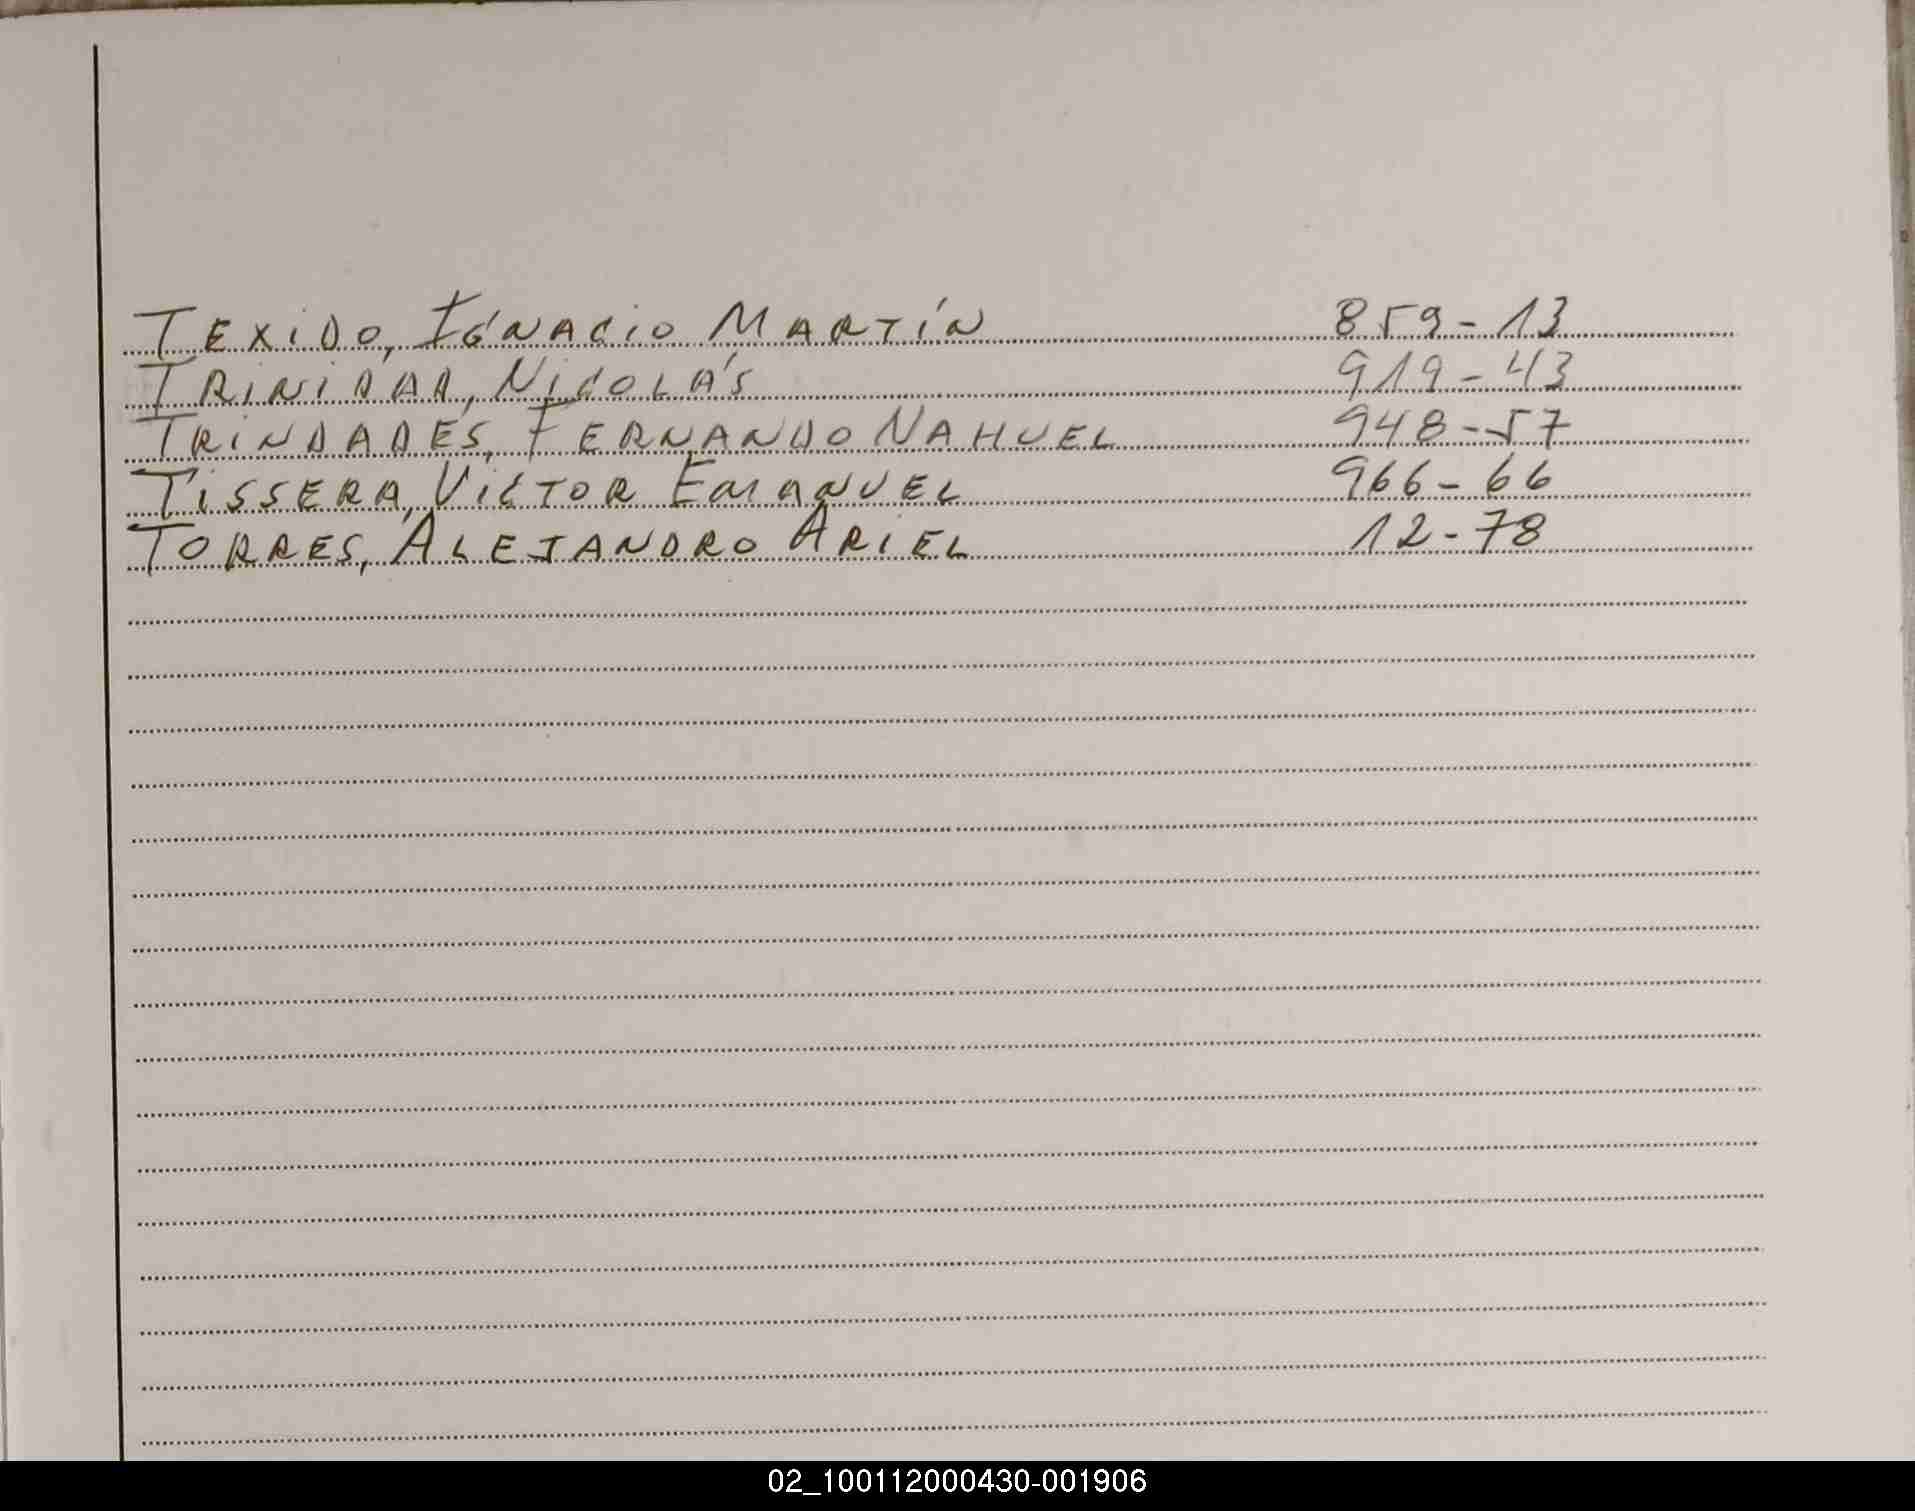 TEXIDO, IGNACIO MARTÍN 859-13
TRINIDAD, NICOLÁS 919-43
TRINDADES, FERNANDO NAHUEL 948-57
TISSERA, VICTOR EMANUEL 966-66
TORRES, ALEJANDRO ARIEL 12-78
02_100112000430-001906